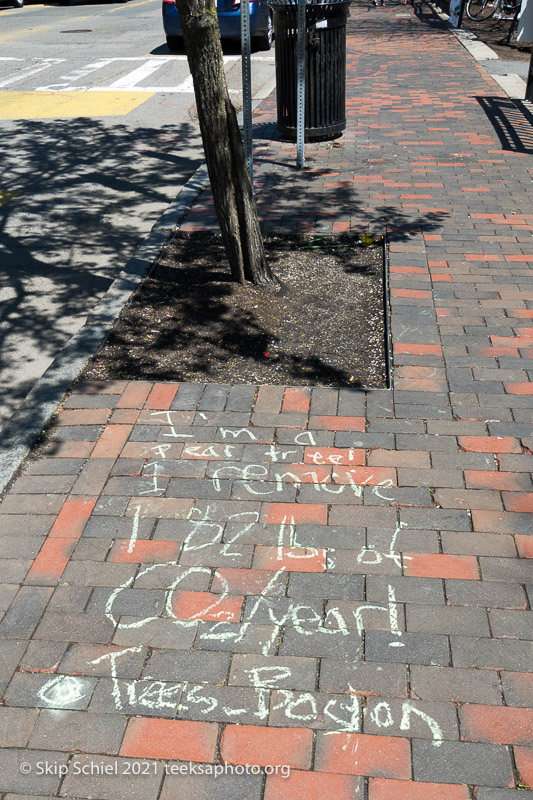 I'm a
pear tree!
I remove
182 lb. of
CO2/year!
@Trees_Boston
© Skip Schiel 2021 teeksaphoto.org